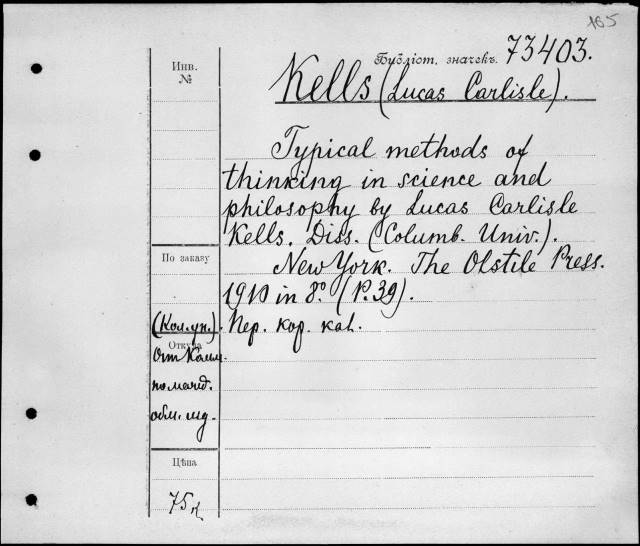 165
Бубліот. значекъ. 73403.
Инв.
№
Kells (Lucas Carlisle).
Typical methods of
thinking in science and
philosophy by Lucas Carlisle
Kells. Diss. (Columb. Univ.).
По заказу
New York. The Olstile Press.
1910 in 8º. (P. 39).
(Кол. ун.). Пер. кор. каl.
Откуда
От Колум.
по межд.
обм. изд.
Цѣна
75 к